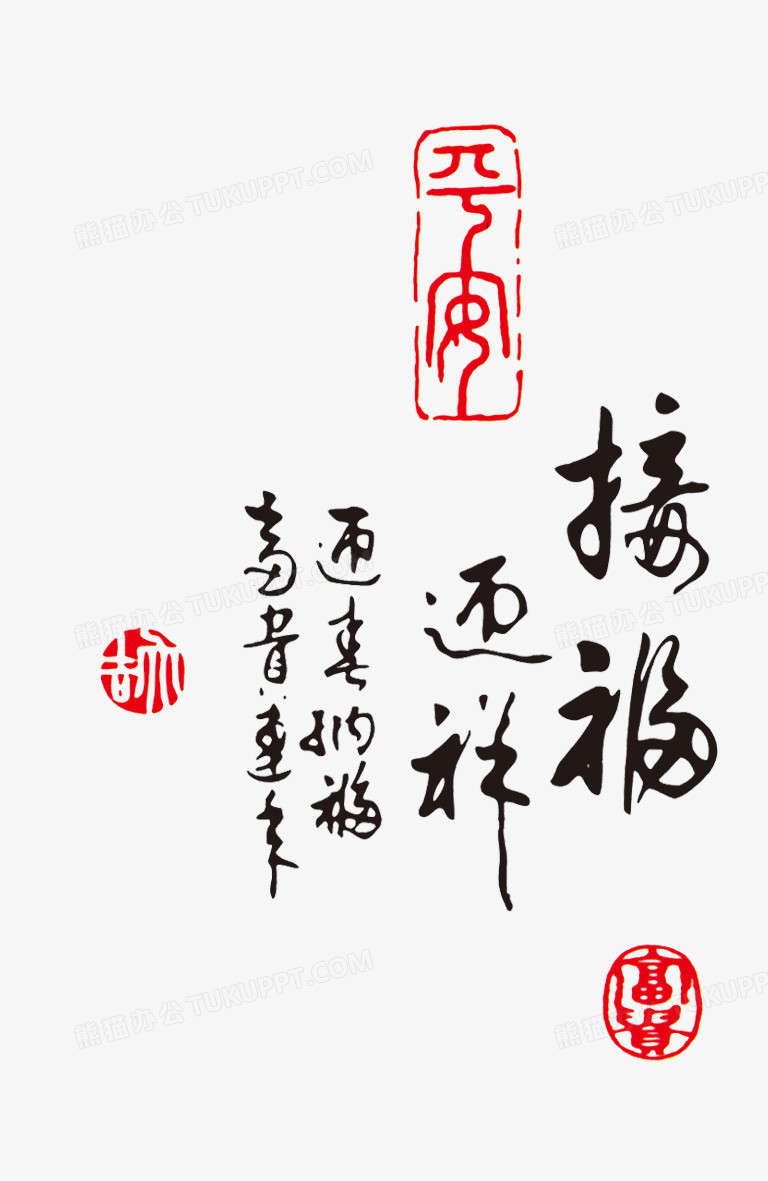 平安
接福
迎祥
迎春纳福
富貴連年
富貴
熊猫办公 TUKUPPT.COM
熊猫办公 TUKUPPT.COM
熊猫办公 TUKUPPT.COM
熊猫办公 TUKUPPT.COM
熊猫办公 TUKUPPT.COM
熊猫办公 TUKUPPT.COM